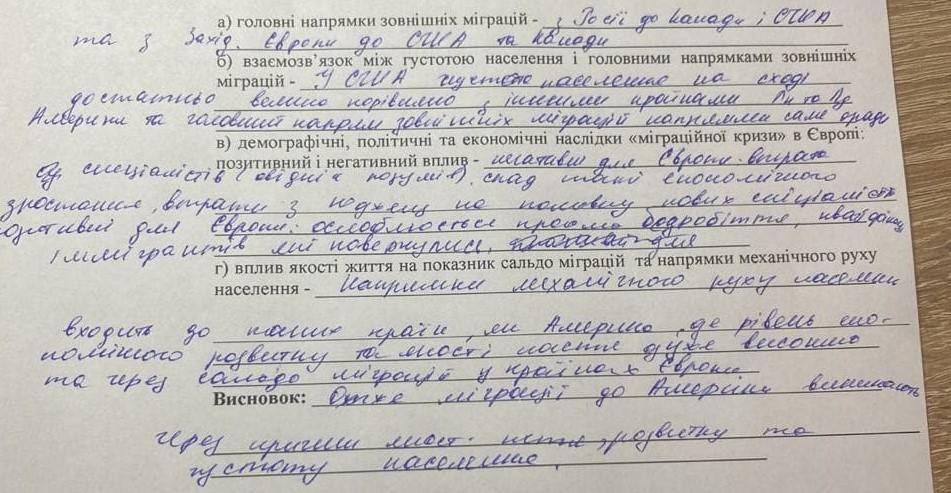 а) головні напрямки зовнішніх міграцій - з Росії до Канади і США
та з Захід. Європи до США та Канади
б) взаємозв'язок між густотою населення і головними напрямками зовнішніх
міграцій - У США густота населення на сході
достатньо велика порівняно з іншими країнами Пн та Пд
Америки та головний напрям зовнішніх міграцій напрямлен саме сюди
в) демографічні, політичні та економічні наслідки «міграційної кризи» в Європі:
позитивний і негативний вплив - негативні для Європи: втрата
спеціалістів ("відплив розумів"), спад темпів економічного
зростання, втрати з бюджету на нових спеціалістів
позитивні для Європи: ослаблюється безробіття, кваліфікац
іммігрантів які повернулися,
г) вплив якості життя на показник сальдо міграцій та напрямки механічного руху
населення - Напрямки механічного руху населен
входить до таких країн, як Америка, де рівень еко-
номічного розвитку та якості життя дуже високий
та через сальдо міграцій у країнах Європи
Висновок: Отже міграції до Америки виникають
через причини якост. життя, розвитку та
густоту населення.